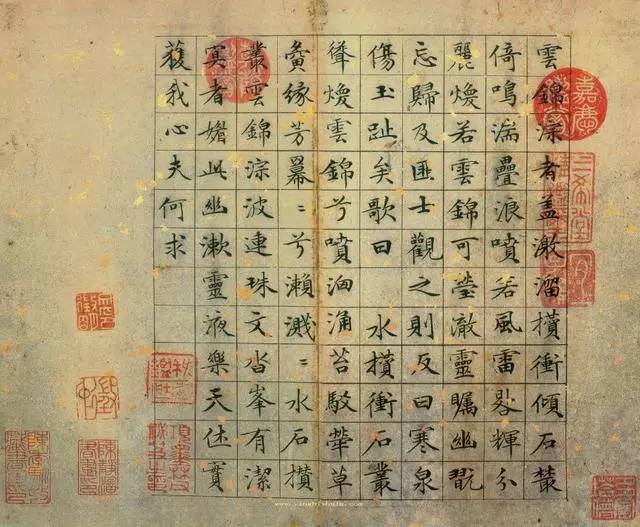 雲錦淙者盖激溜攢衝傾石叢
倚鳴湍疊浪噴若風雷輝分
麗煥若雲錦可瑩澈靈矚幽翫
忘歸及匪士觀之則反曰寒泉
傷玉趾矣歌曰 水攢衝石叢
聳煥雲錦兮噴洶涌苔駮犖草
夤緣芳羃〻兮瀨濺〻水石攢
叢雲錦淙波連珠文沓峯有潔
冥者媚此幽漱靈液樂天休實
獲我心夫何求
三希堂精鑑璽
宜子孫